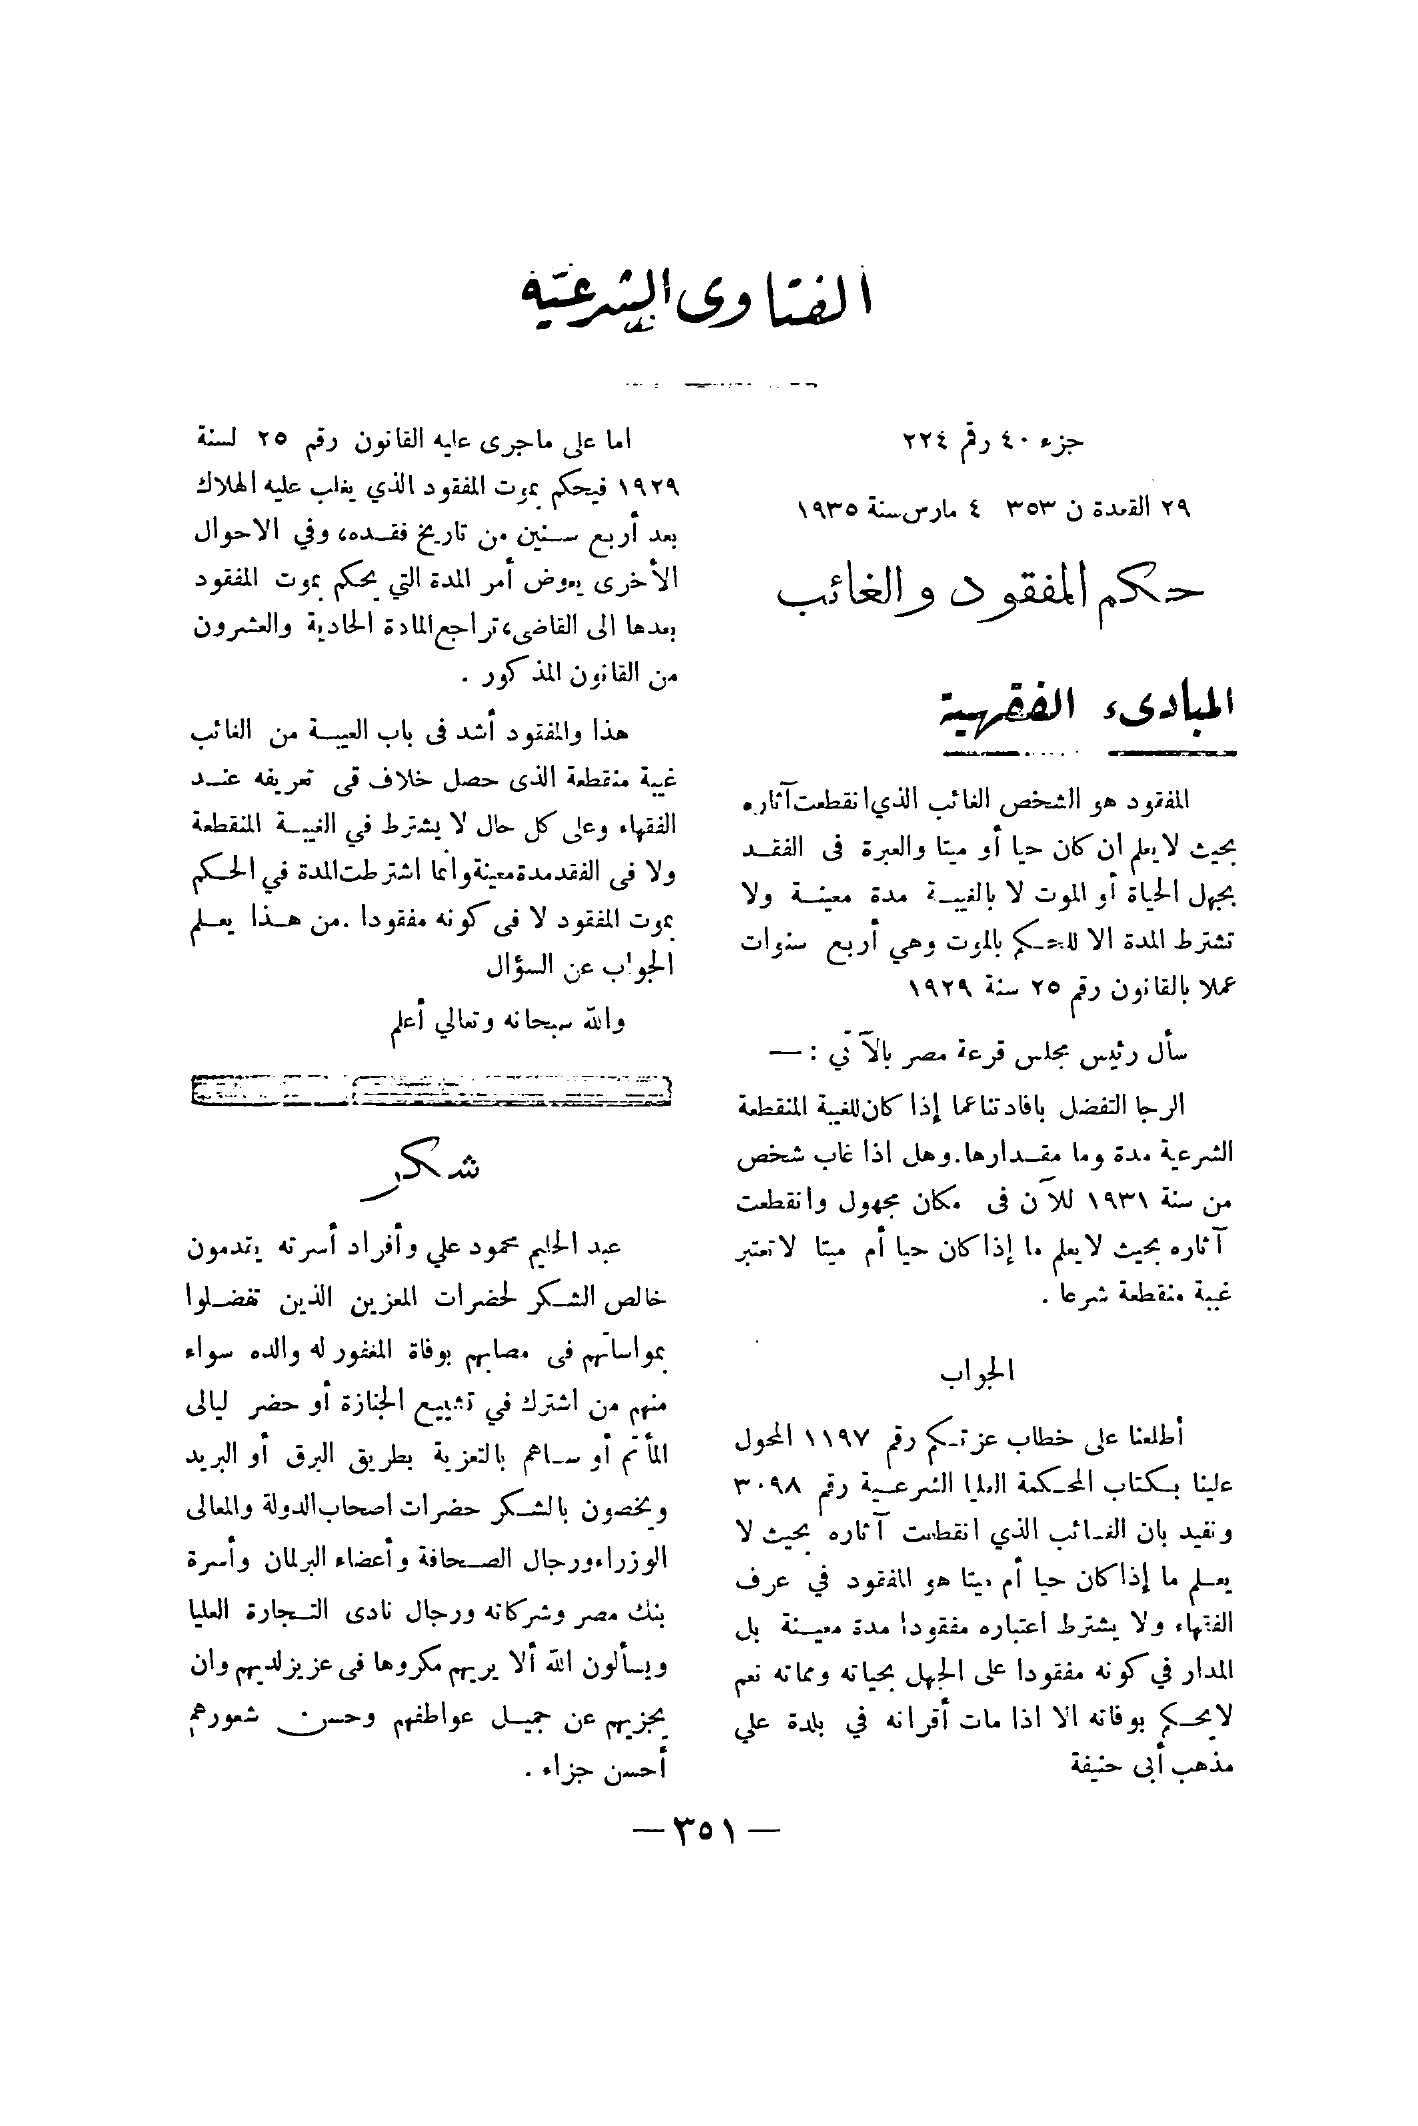 الفتاوى الشرعية
جزء ٤٠ رقم ٢٢٤
٢٩ القعدة ن ٣٥٣ ٤ مارس سنة ١٩٣٥
حكم المفقود والغائب
المبادىء الفقهية
المفقود هو الشخص الغائب الذي انقطعت آثاره
بحيث لا يعلم ان كان حيا أو ميتا والعبرة فى الفقد
بجهل الحياة أو الموت لا بالغيبة مدة معينة ولا
تشترط المدة الا للحكم بالموت وهي أربع سنوات
عملا بالقانون رقم ٢٥ سنة ١٩٢٩
سأل رئيس مجلس قرعة مصر بالآتي : —
الرجا التفضل بافادتنا عما إذا كان للغيبة المنقطعة
الشرعية مدة وما مقدارها . وهل اذا غاب شخص
من سنة ١٩٣١ للآن فى مكان مجهول وانقطعت
آثاره بحيث لا يعلم ما إذا كان حيا أم ميتا لا تعتبر
غيبة منقطعة شرعا .
الجواب
أطلعنا على خطاب عزتكم رقم ١١٩٧ المحول
علينا بكتاب المحكمة العليا الشرعية رقم ٣٠٩٨
ونفيد بان الغائب الذي انقطعت آثاره بحيث لا
يعلم ما إذا كان حيا أم ميتا هو المفقود في عرف
الفقهاء ولا يشترط اعتباره مفقودا مدة معينة بل
المدار في كونه مفقودا على الجهل بحياته ومماته نعم
لا يحكم بوفاته الا اذا مات أقرانه في بلدة علي
مذهب أبى حنيفة
اما على ما جرى عليه القانون رقم ٢٥ لسنة
١٩٢٩ فيحكم بموت المفقود الذي يغلب عليه الهلاك
بعد أربع سنين من تاريخ فقده، وفي الاحوال
الأخرى يعوض أمر المدة التي يحكم بموت المفقود
بعدها الى القاضى، تراجع المادة الحادية والعشرون
من القانون المذكور .
هذا والمفقود أشد فى باب الغيبة من الغائب
غيبة منقطعة الذى حصل خلاف قى تعريفه عند
الفقهاء وعلى كل حال لا يشترط في الغيبة المنقطعة
ولا فى الفقد مدة معينة وانما اشترطت المدة في الحكم
بموت المفقود لا فى كونه مفقودا . من هذا يعلم
الجواب عن السؤال
والله سبحانه وتعالي أعلم
شكر
عبد الحليم محمود علي وأفراد أسرته يتقدمون
خالص الشكر لحضرات المعزين الذين تفضلوا
بمواساتهم فى مصابهم بوفاة المغفور له والده سواء
منهم من اشترك في تشييع الجنازة أو حضر ليالى
المأتم أو ساهم بالتعزية بطريق البرق أو البريد
ويخصون بالشكر حضرات اصحاب الدولة والمعالى
الوزراء ورجال الصحافة وأعضاء البرلمان وأسرة
بنك مصر وشركاته ورجال نادى التجارة العليا
ويسألون الله ألا يريهم مكروها فى عزيز لديهم وان
يجزيهم عن جميل عواطفهم وحسن شعورهم
أحسن جزاء .
— ٣٥١ —